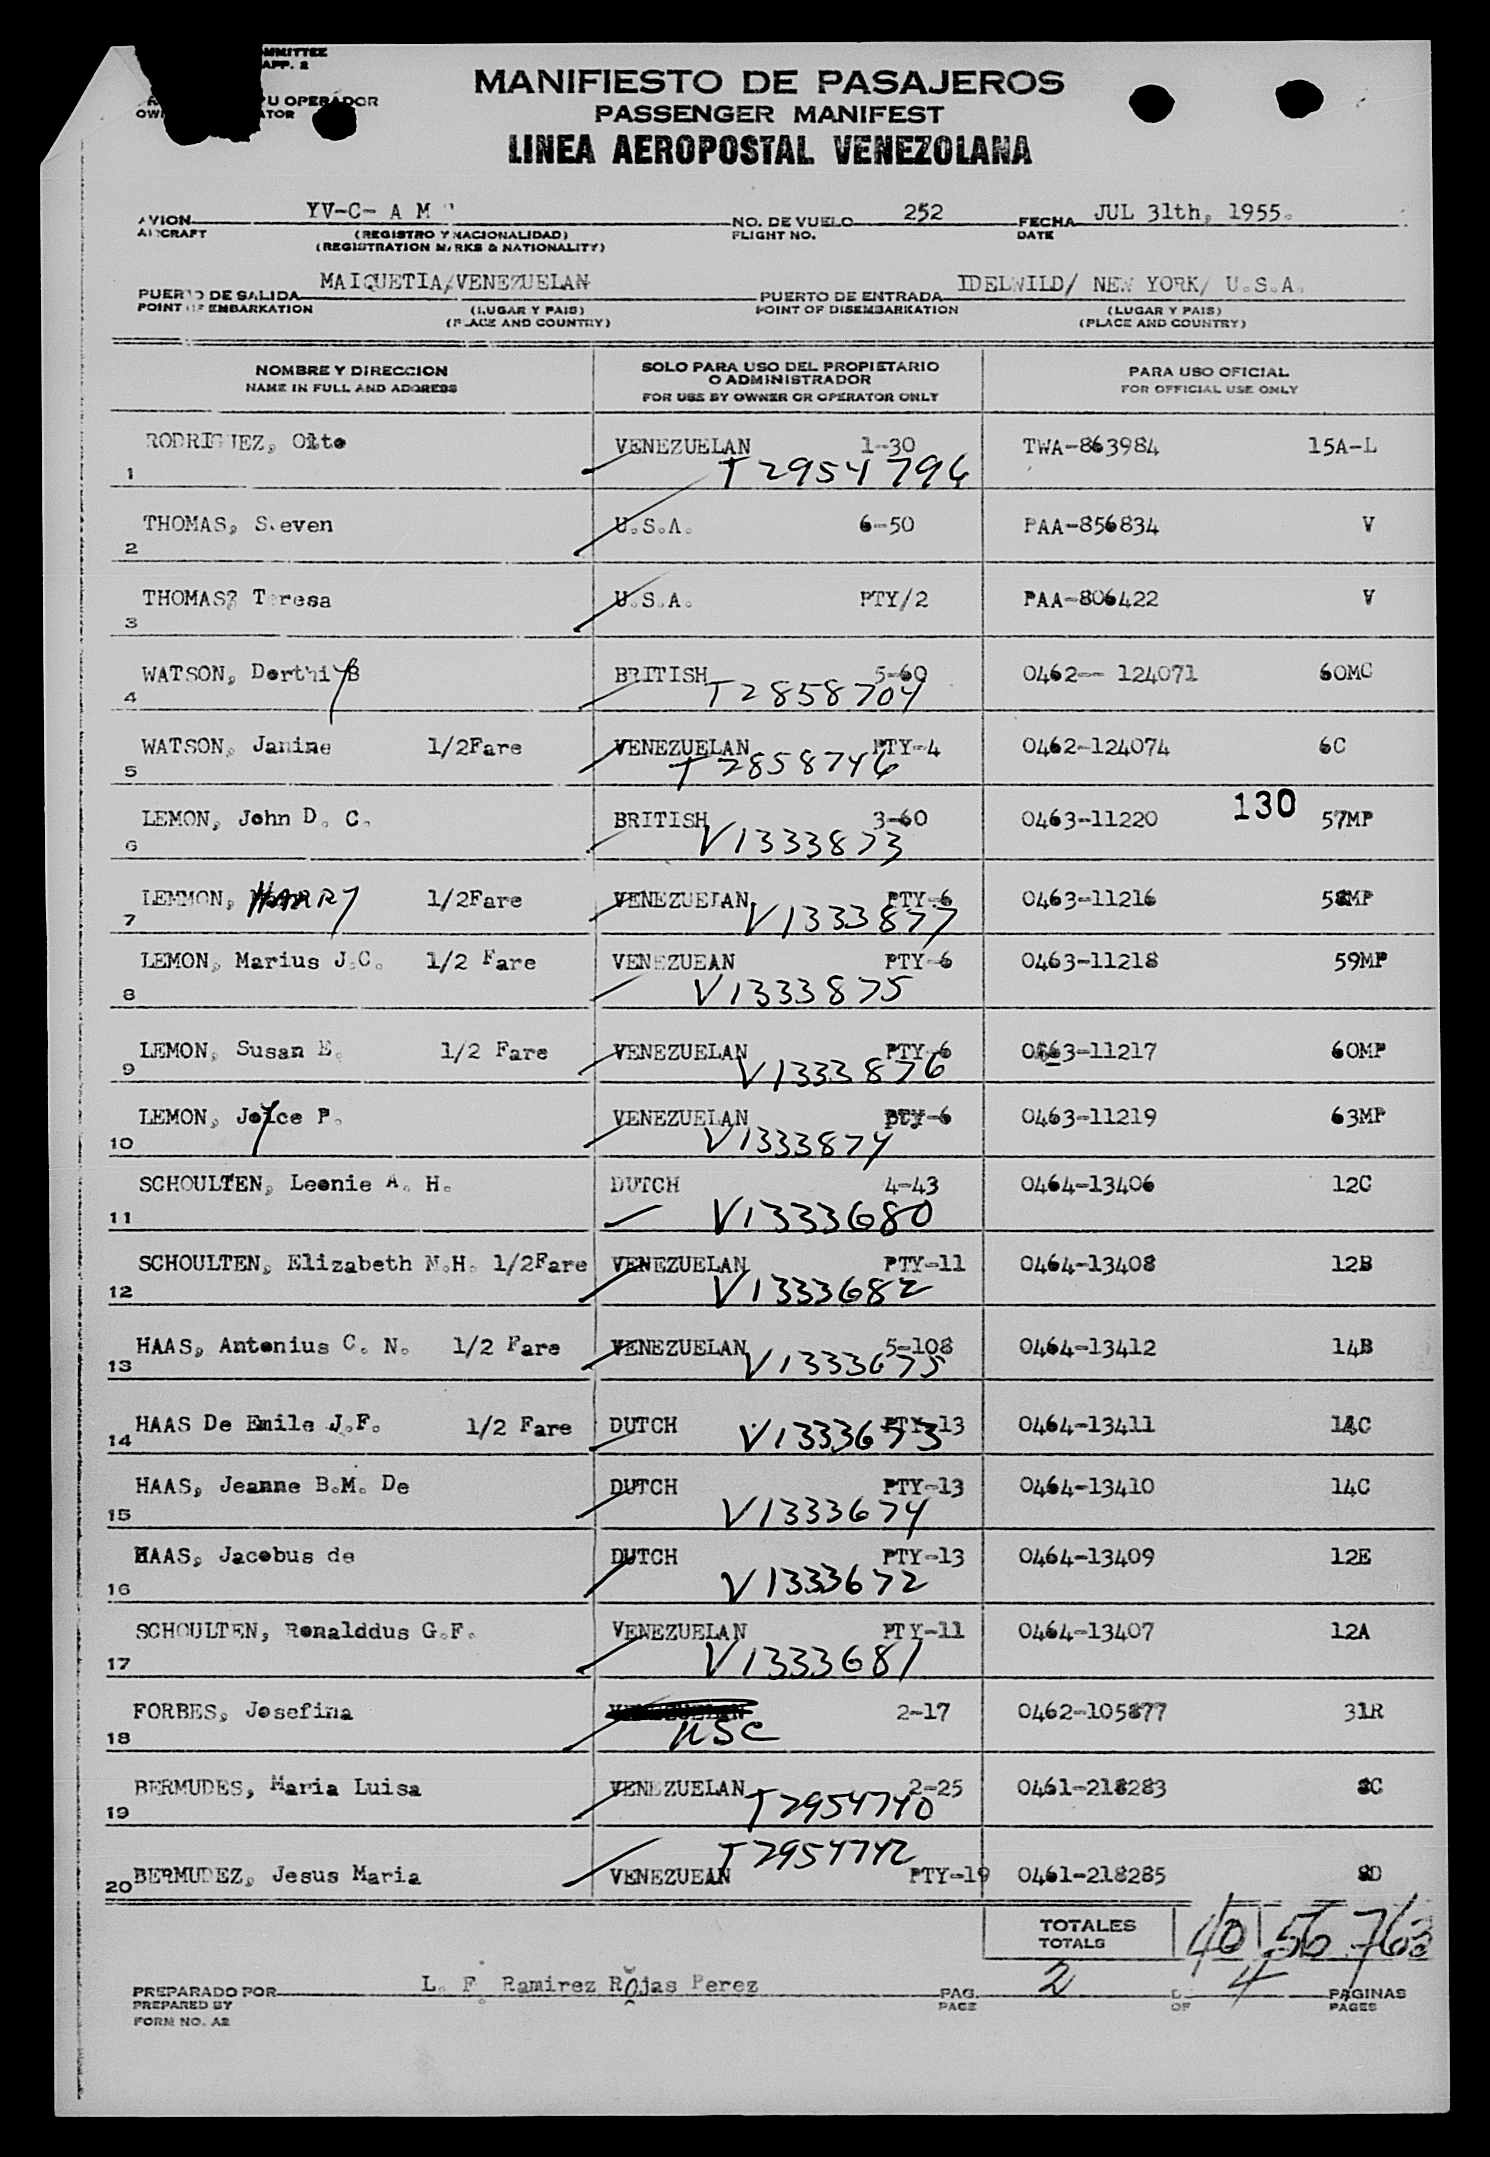 MMITTEE
APP. 2
U OPERADOR
MANIFIESTO DE PASAJEROS
PASSENGER MANIFEST
LINEA AEROPOSTAL VENEZOLANA
AVION YV-C- A M NO. DE VUELO 252 FECHA JUL 31th, 1955.
AIRCRAFT (REGISTRO Y NACIONALIDAD) FLIGHT NO. DATE
(REGISTRATION MARKS & NATIONALITY)
PUERTO DE SALIDA MAIQUETIA/VENEZUELAN PUERTO DE ENTRADA IDELWILD/ NEW YORK/ U.S.A.
POINT OF EMBARKATION (LUGAR Y PAIS) POINT OF DISEMBARKATION (LUGAR Y PAIS)
(PLACE AND COUNTRY) (PLACE AND COUNTRY)
NOMBRE Y DIRECCION SOLO PARA USO DEL PROPIETARIO PARA USO OFICIAL
O ADMINISTRADOR
NAME IN FULL AND ADDRESS FOR USE BY OWNER OR OPERATOR ONLY FOR OFFICIAL USE ONLY
RODRIGUEZ, Otto VENEZUELAN 1-30 TWA-863984 15A-L
1 T2954796
THOMAS, Steven U.S.A. 6-50 PAA-856834 V
2
THOMAS? Teresa U.S.A. PTY/2 PAA-806422 V
3
WATSON, Dorthiy B BRITISH 5-60 0462-- 124071 60MC
4 T2858704
WATSON, Janine 1/2Fare VENEZUELAN PTY-4 0462-124074 6C
5 T2858746
LEMON, John D. C. BRITISH 3-60 0463-11220 130 57MP
6 V1333873
LEMMON, HARRY 1/2Fare VENEZUELAN PTY-6 0463-11216 58MP
7 V1333877
LEMON, Marius J.C. 1/2 Fare VENEZUEAN PTY-6 0463-11218 59MP
8 V1333875
LEMON, Susan E. 1/2 Fare VENEZUELAN PTY-6 0463-11217 60MP
9 V1333876
LEMON, Joyce P. VENEZUELAN pty-6 0463-11219 63MP
10 V1333874
SCHOULTEN, Leonie A. H. DUTCH 4-43 0464-13406 12C
11 V1333680
SCHOULTEN, Elizabeth N.H. 1/2Fare VENEZUELAN PTY-11 0464-13408 12B
12 V1333682
HAAS, Antonius C. N. 1/2 Fare VENEZUELAN 5-108 0464-13412 14B
13 V1333675
HAAS De Emile J.F. 1/2 Fare DUTCH PTY-13 0464-13411 14C
14 V1333673
HAAS, Jeanne B.M. De DUTCH PTY-13 0464-13410 14C
15 V1333674
HAAS, Jacobus de DUTCH PTY-13 0464-13409 12E
16 V1333672
SCHOULTEN, Ronalddus G.F. VENEZUELAN PTY-11 0464-13407 12A
17 V1333681
FORBES, Josefina VENEZUELAN 2-17 0462-105877 31R
18 USC
BERMUDES, Maria Luisa VENEZUELAN 2-25 0461-218283 8C
19 T2954740
T2954742
20 BERMUDEZ, Jesus Maria VENEZUEAN PTY-19 0461-218285 8D
TOTALES 40 56 763
TOTALS
PREPARADO POR L. F. Ramirez Rojas Perez PAG. 2 4 PAGINAS
PREPARED BY PAGE OF PAGES
FORM NO. A2